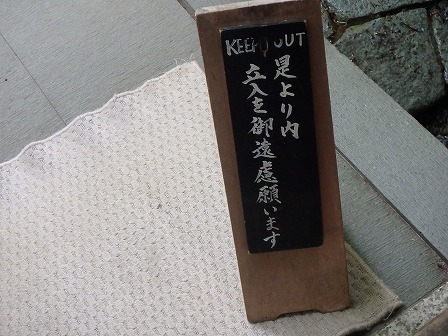 KEEP OUT
是より内
立入を御遠慮願います